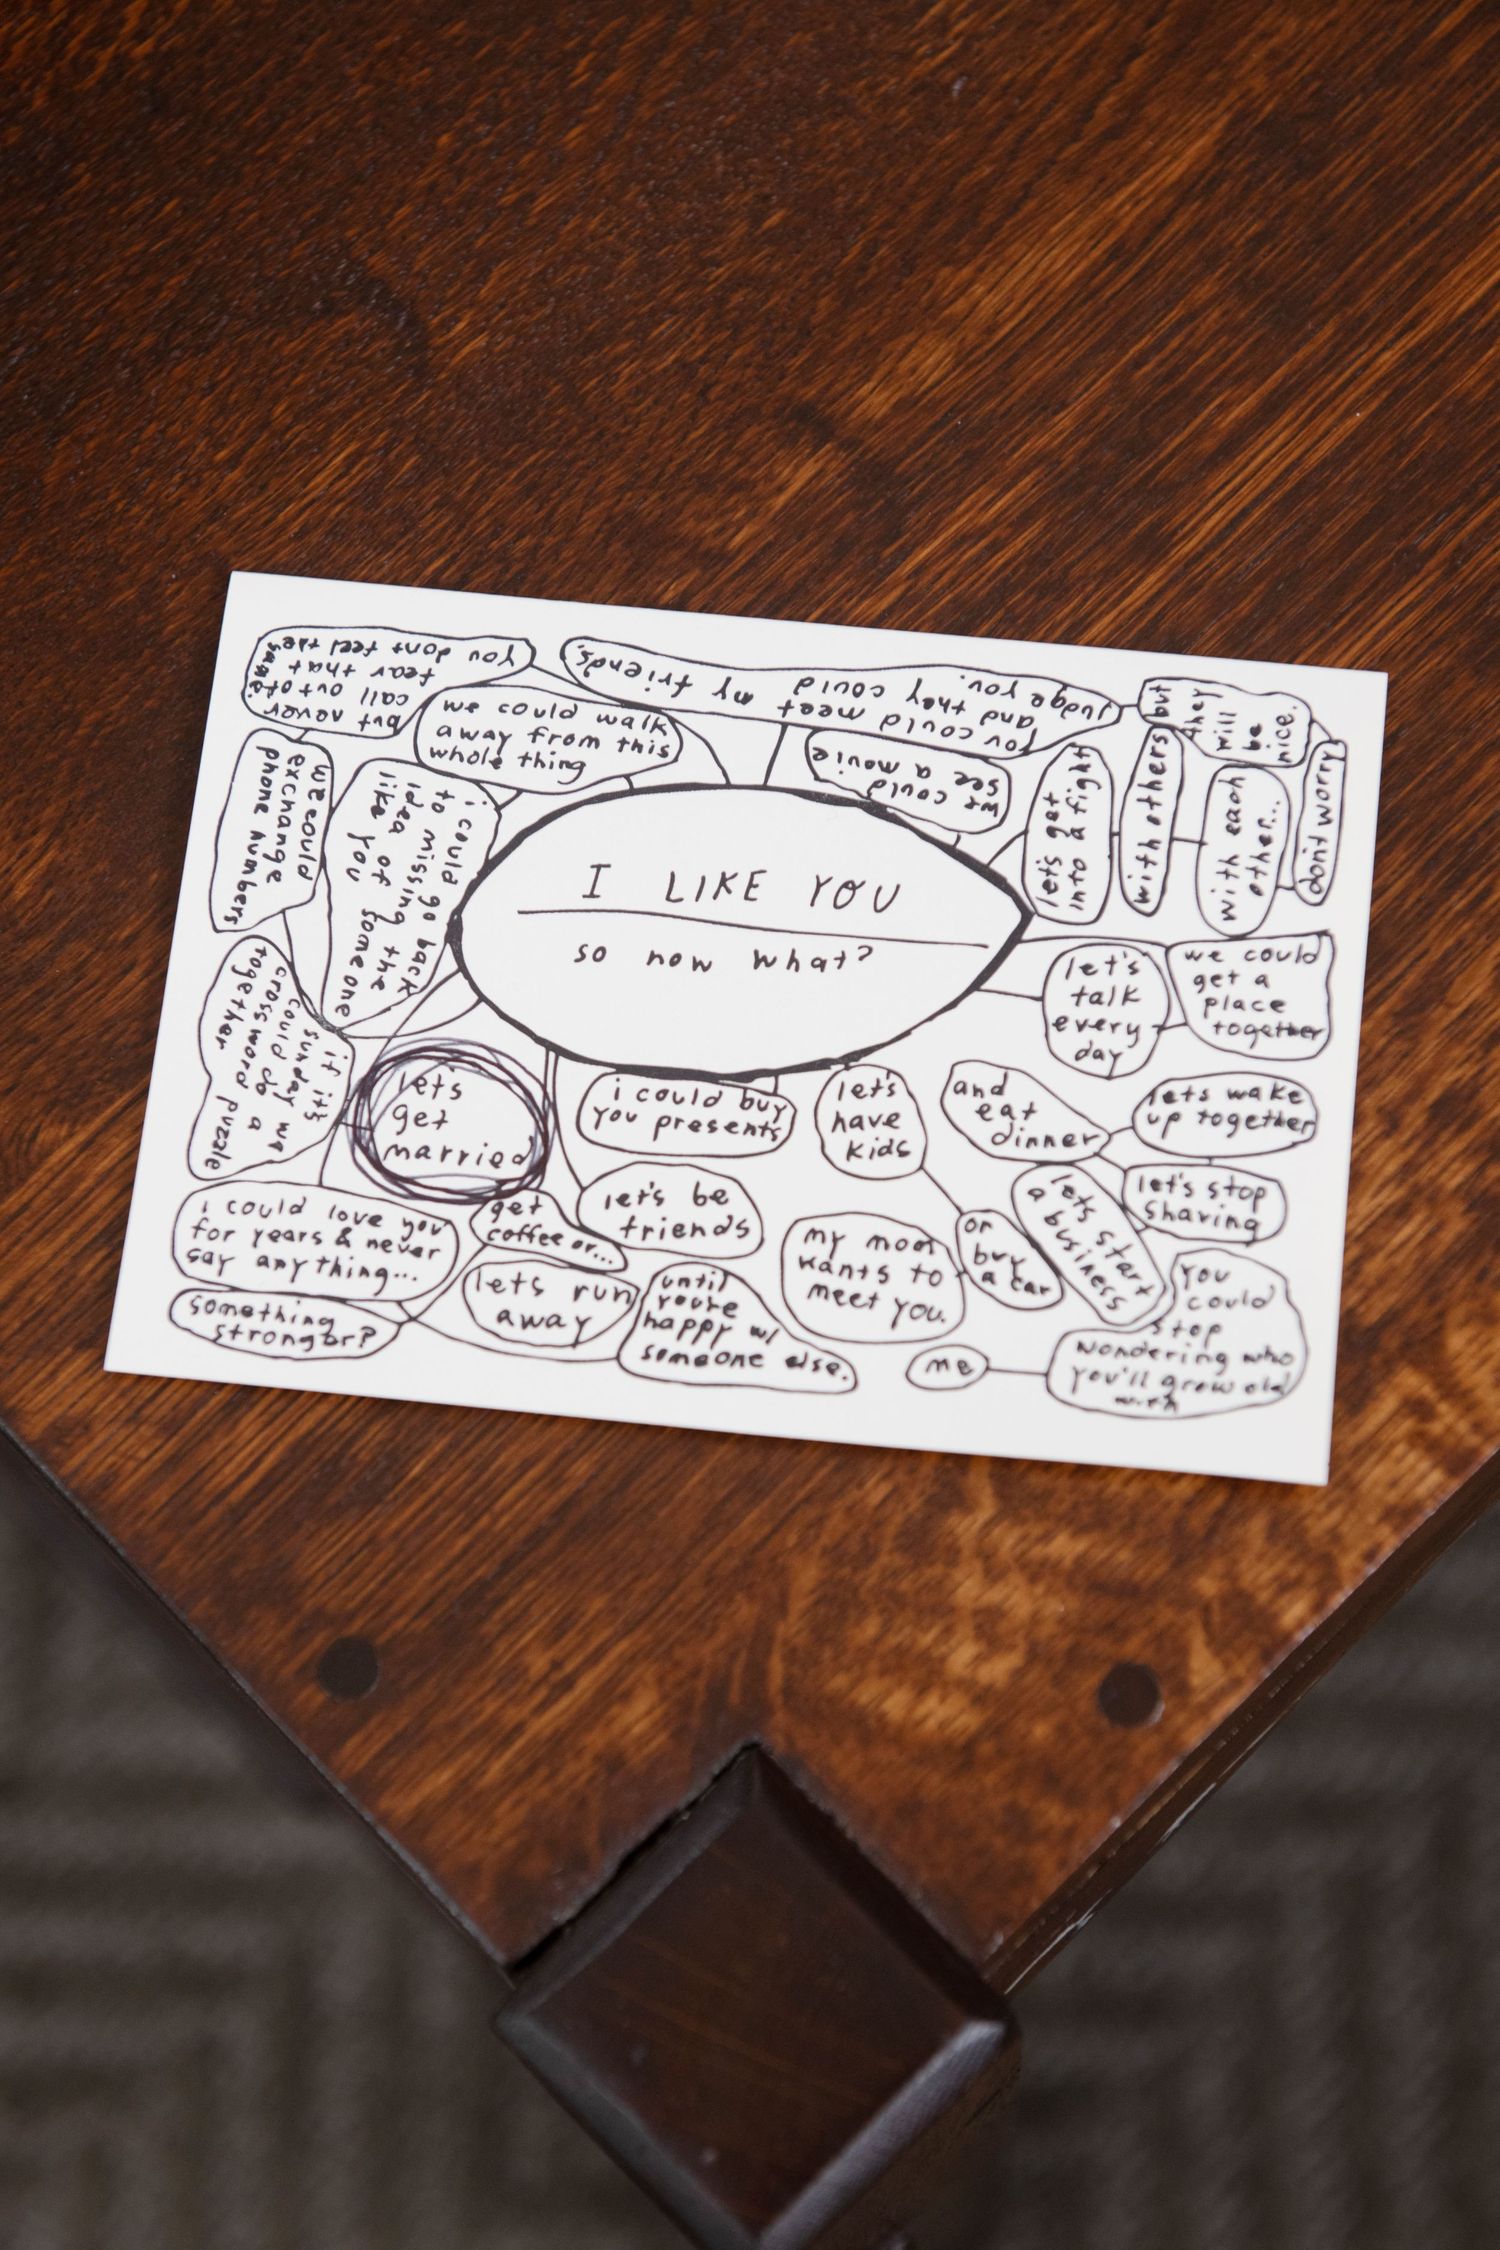 I LIKE YOU
so now what?
you dont feel the
fear that
call out of
but never
we could walk
away from this
whole thing
you could meet my friends.
and they could
judge you.
but
they
will
be
nice.
don't worry
we could
see a movie
let's get
into a fight
with others
with each
other...
we could
exchange
phone numbers
i could go back
to missing the
idea of someone
like you
let's
talk
every
day
we could
get a
place
together
if it's
sunday we
could do a
crossword puzzle
together
let's
get
married
i could buy
you presents
let's
have
kids
and
eat
dinner
lets wake
up together
let's stop
sharing
let's start
a business
or
buy
a car
my mom
wants to
meet you.
let's be
friends
get
coffee or...
i could love you
for years & never
say anything...
something
stronger?
lets run
away
until
you're
happy w/
someone else.
me
you
could
stop
wondering who
you'll grow old
with